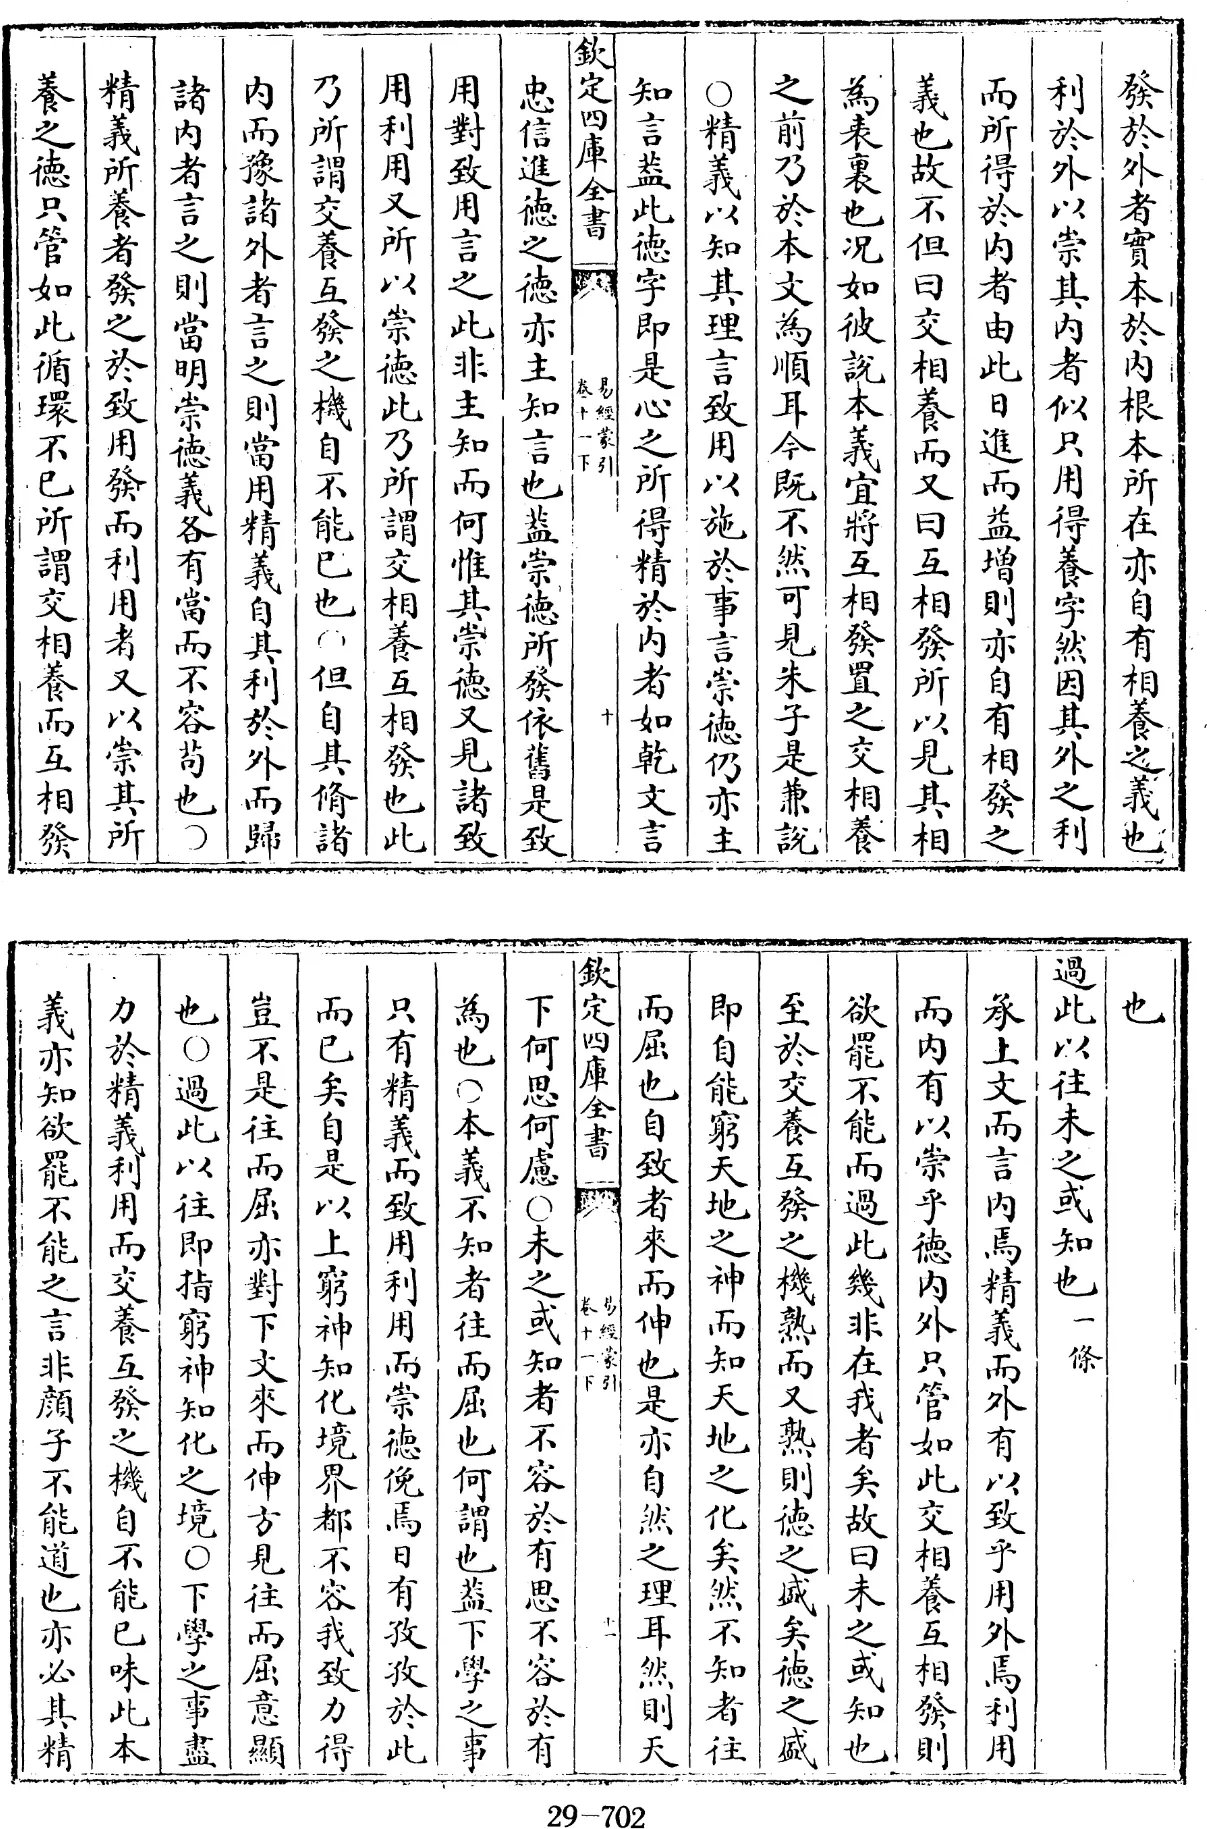 發於外者實本於内根本所在亦自有相養之義也
利於外以崇其内者似只用得養字然因其外之利
而所得於内者由此日進而益增則亦自有相發之
義也故不但曰交相養而又曰互相發所以見其相
為表裏也况如彼說本義宜將互相發置之交相養
之前乃於本文為順耳今既不然可見朱子是兼說
○精義以知其理言致用以施於事言崇徳仍亦主
知言葢此徳字即是心之所得精於内者如乾文言
欽定四庫全書
易經蒙引
卷十一下
十
忠信進徳之徳亦主知言也葢崇徳所發依舊是致
用對致用言之此非主知而何惟其崇徳又見諸致
用利用又所以崇徳此乃所謂交相養互相發也此
乃所謂交養互發之機自不能已也○但自其脩諸
内而豫諸外者言之則當用精義自其利於外而歸
諸内者言之則當明崇徳義各有當而不容茍也○
精義所養者發之於致用發而利用者又以崇其所
養之徳只管如此循環不已所謂交相養而互相發
也
過此以往未之或知也一條
承上文而言内焉精義而外有以致乎用外焉利用
而内有以崇乎徳内外只管如此交相養互相發則
欲罷不能而過此幾非在我者矣故曰未之或知也
至於交養互發之機熟而又熟則徳之盛矣徳之盛
即自能窮天地之神而知天地之化矣然不知者往
而屈也自致者來而伸也是亦自然之理耳然則天
欽定四庫全書
易經蒙引
卷十一下
十一
下何思何慮○未之或知者不容於有思不容於有
為也○本義不知者往而屈也何謂也葢下學之事
只有精義而致用利用而崇徳俛焉日有孜孜於此
而已矣自是以上窮神知化境界都不容我致力得
豈不是往而屈亦對下文來而伸方見往而屈意顯
也○過此以往即指窮神知化之境○下學之事盡
力於精義利用而交養互發之機自不能已味此本
義亦知欲罷不能之言非顔子不能道也亦必其精
29-702